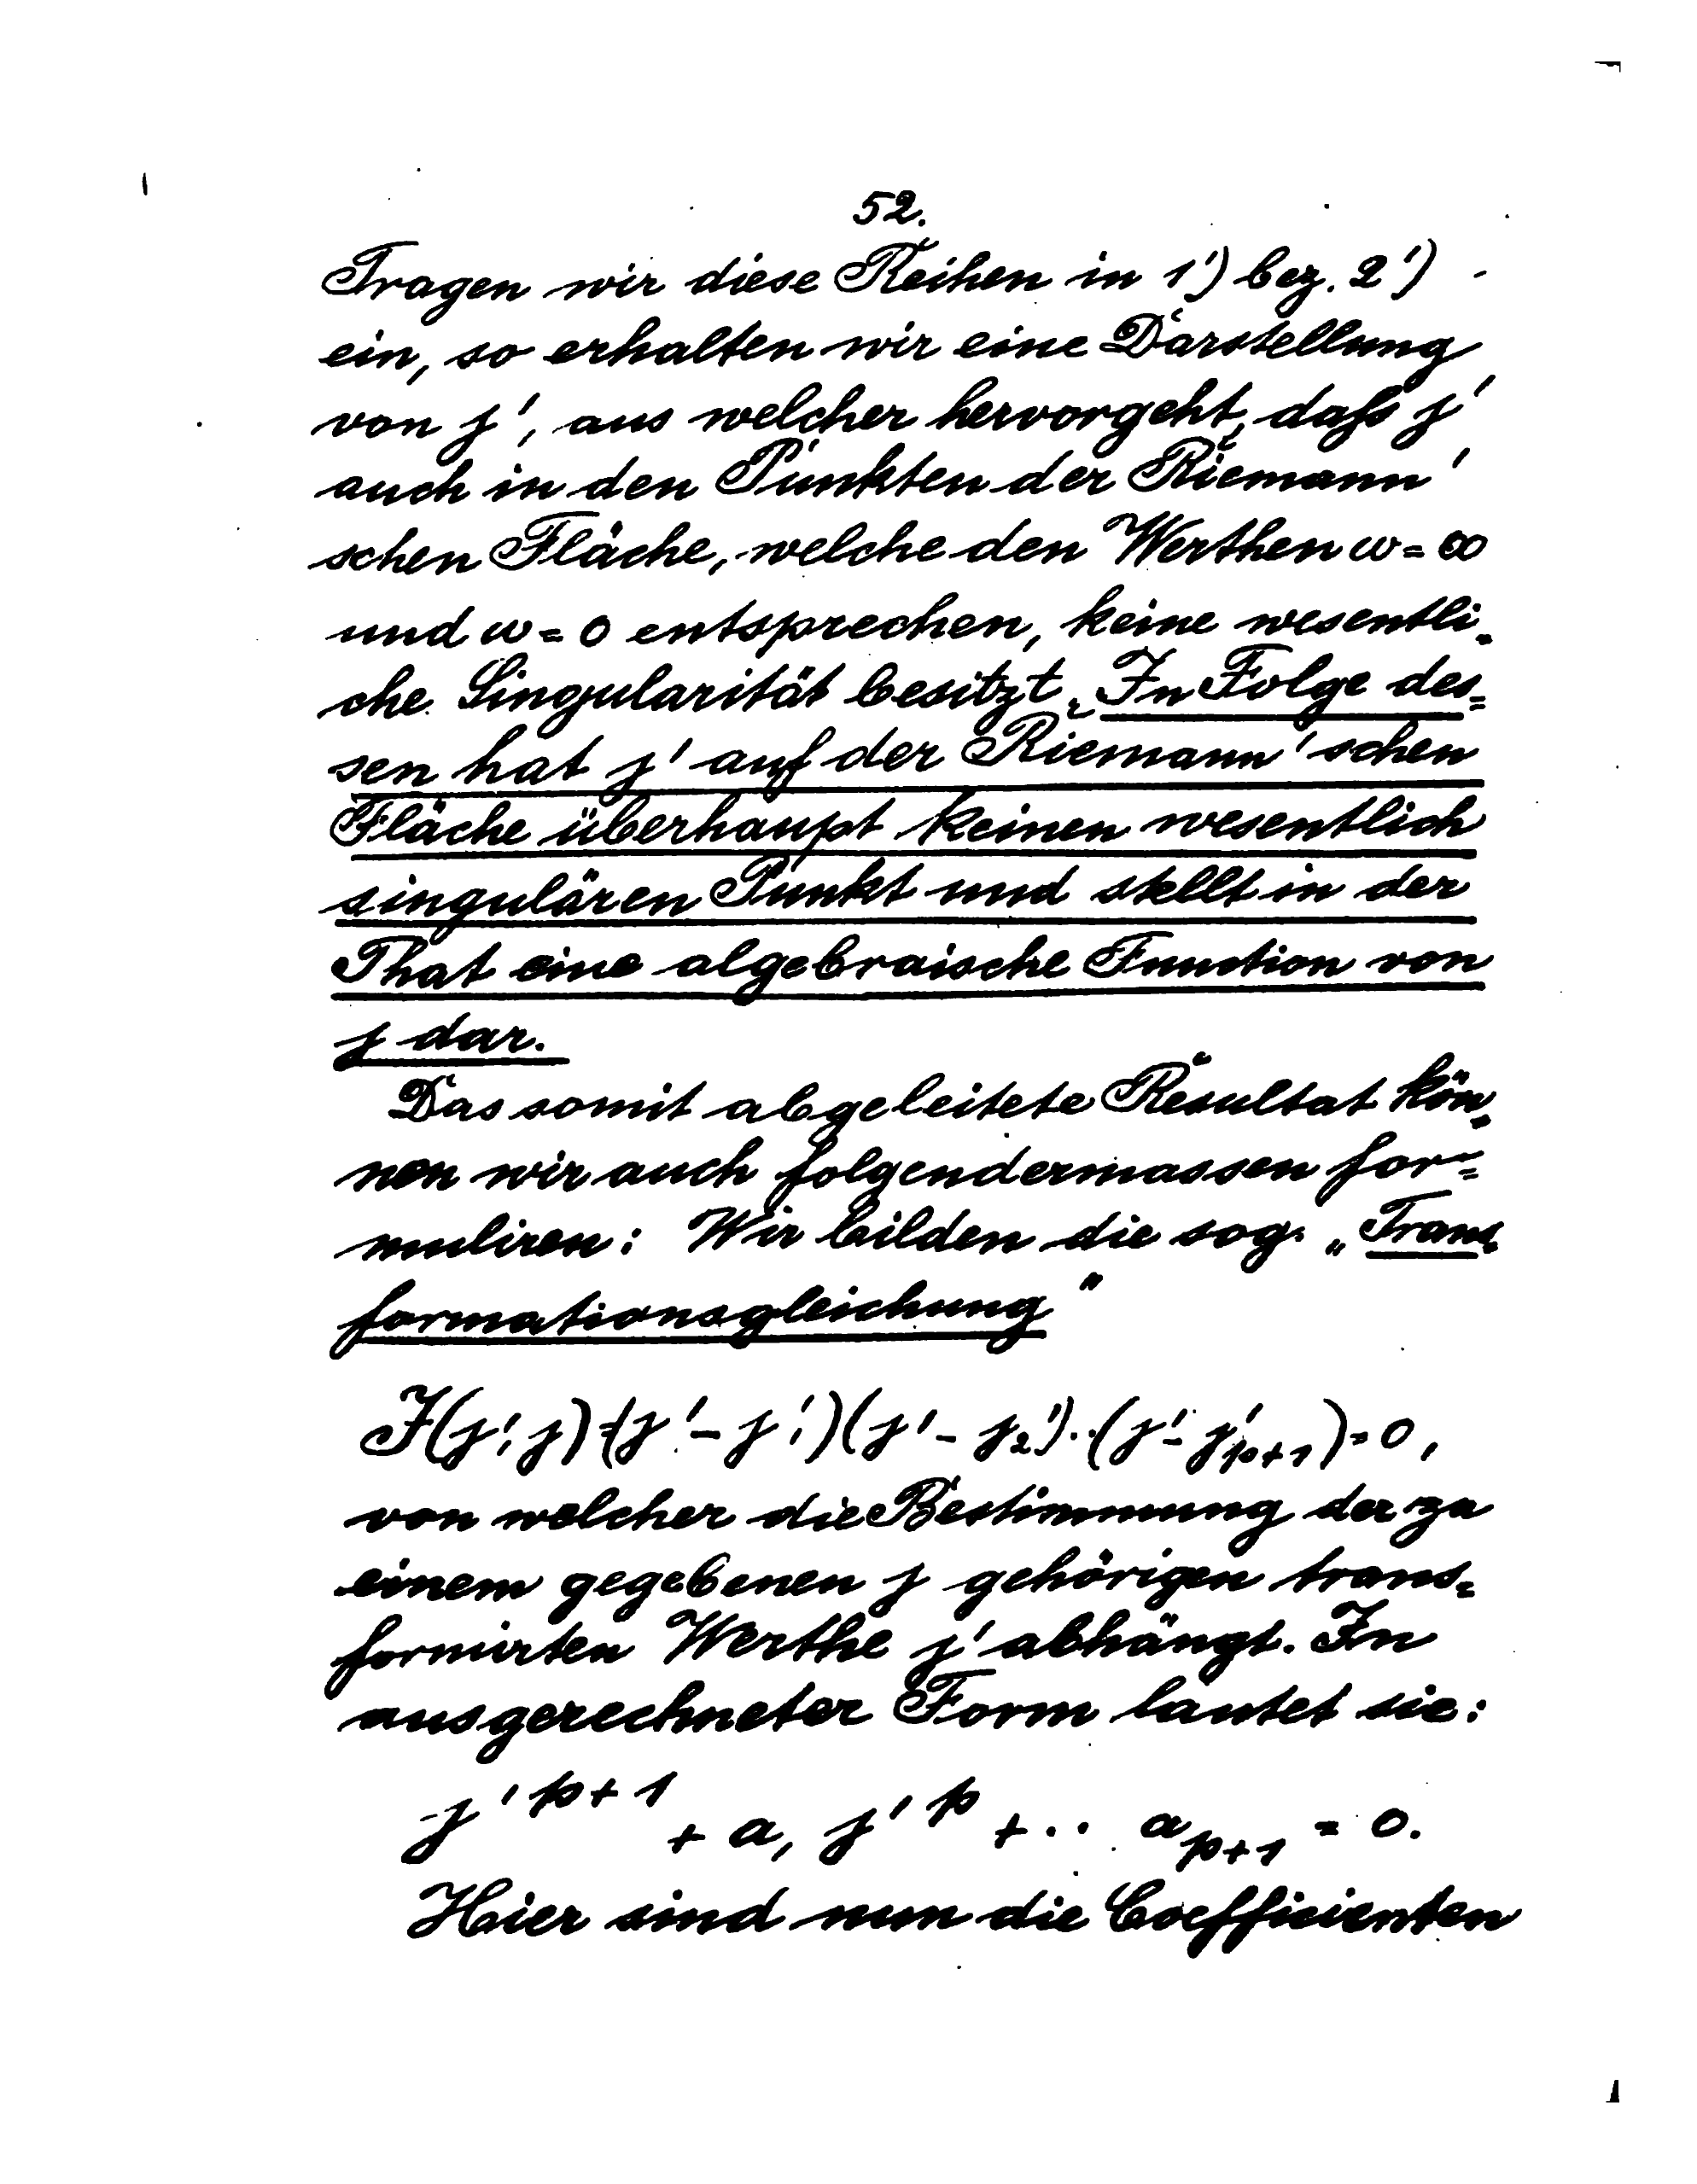 52.
Tragen wir diese Reihen in 1') bez. 2')
ein, so erhalten wir eine Darstellung
von j', aus welcher hervorgeht, daß j'
auch in den Punkten der Riemann'
schen Fläche, welche den Werthen ω = ∞
und ω = 0 entsprechen, keine wesentli-
che Singularität besitzt. In Folge des-
sen hat j' auf der Riemann'schen
Fläche überhaupt keinen wesentlich
singulären Punkt und stellt in der
That eine algebraische Function von
j dar.
Das somit abgeleitete Resultat kön-
nen wir auch folgendermassen for-
muliren: Wir bilden die sog. „Trans-
formationsgleichung"
F(j', j) = (j' - j'₁)(j' - j₂')..(j' - j'ₚ₊₁) = 0,
von welcher die Bestimmung der zu
einem gegebenen j gehörigen trans-
formirten Werthe j' abhängt. In
ausgerechneter Form lautet sie:
j'^{p+1} + a₁ j'^p + .. a_{p+1} = 0.
Hier sind nun die Coefficienten